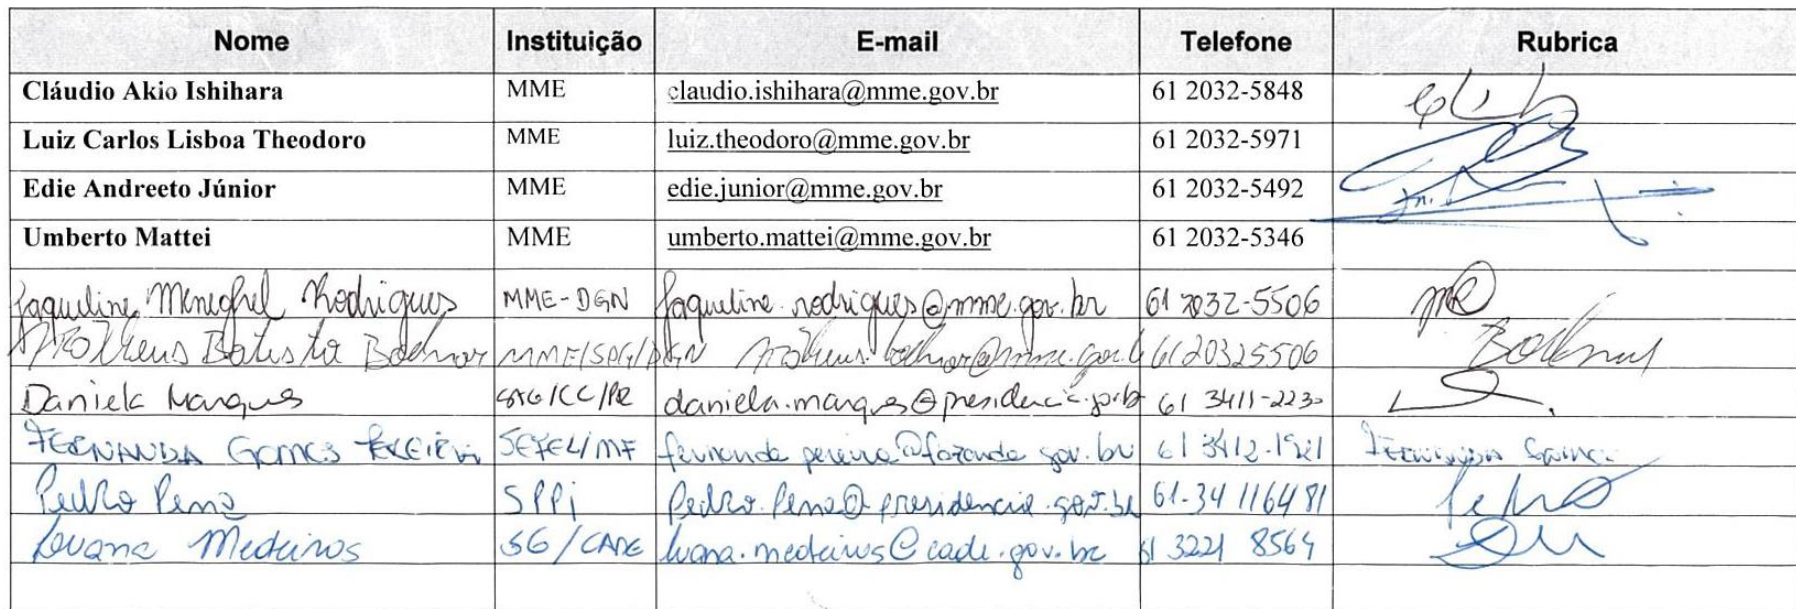 Nome Instituição E-mail Telefone Rubrica
Cláudio Akio Ishihara MME claudio.ishihara@mme.gov.br 61 2032-5848
Luiz Carlos Lisboa Theodoro MME luiz.theodoro@mme.gov.br 61 2032-5971
Edie Andreeto Júnior MME edie.junior@mme.gov.br 61 2032-5492
Umberto Mattei MME umberto.mattei@mme.gov.br 61 2032-5346
Jaqueline Meneghel Rodrigues MME-DGN jaqueline.rodrigues@mme.gov.br 61 2032-5506
Matheus Batista Bodnar MME/SPG/DGN matheus.bodnar@mme.gov.b 61 20325506
Daniela Marques SAG/CC/PR daniela.marques@presidencia.gov.br 61 3411-2230
FERNANDA GOMES PEREIRA SEFEL/MF fernanda.pereira@fazenda.gov.br 61 3412-1921
Pedro Pena SPPI Pedro.Pena@presidencia.gov.br 61-34 116481
Luana Medeiros SG/CADE luana.medeiros@cade.gov.br 61 3221 8564